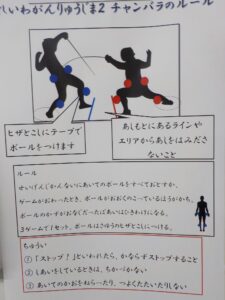 せいわがんりゅうじま2 チャンバラのルール
ヒザとこしにテープで
ボールをつけます
あしもとにあるラインや
エリアからあしをはみださ
ないこと
ルール
せいげんじかんないにあいてのボールをすべておとすか、
ゲームがおわったとき、ボールがおおくのこっているほうがかち。
ボールのかずがおなじだったばあいはひきわけになる。
3ゲームで1セット。ボールはさゆうのヒザとこしにつける。
ちゅうい
① 「ストップ！」といわれたら、かならずストップすること
② しあいをしているときは、ちかづかない
③ あいてのかおをねらったり、つよくたたいたりしない